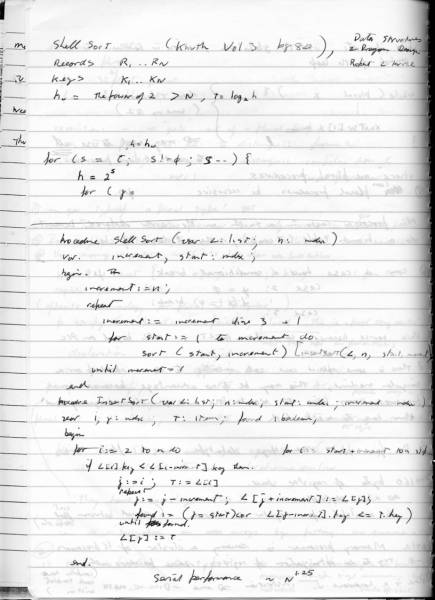 Shell Sort (Knuth Vol. 3 pg 84), Data Structures & Program Design
Records R1 .. RN Robert L Kruse
Keys K1 .. KN
h = the power of 2 > N, t = log2 h
h = h
for (s = t; s != 0; s--) {
h = 2^s
for (j =
procedure ShellSort (var L: list; n: index)
var increment, start: index;
begin
increment := n;
repeat
increment := increment div 3 + 1
for start := 1 to increment do
sort (start, increment) [insertSort(L, n, start,
until increment = 1
end
procedure InsertSort (var L: list; n: index; start: index; increment: index)
var i, j: index, T: item; found: boolean;
begin
for i := 2 to n do for i := start + increment to n
if L[i].key < L[i-incre.].key then
j := i; T := L[i]
repeat
j := j - increment; L[j+increment] := L[j];
found := (j = start) or L[j-increment].key <= T.key)
until found.
L[j] := T
end.
Serial performance ~ N^1.25